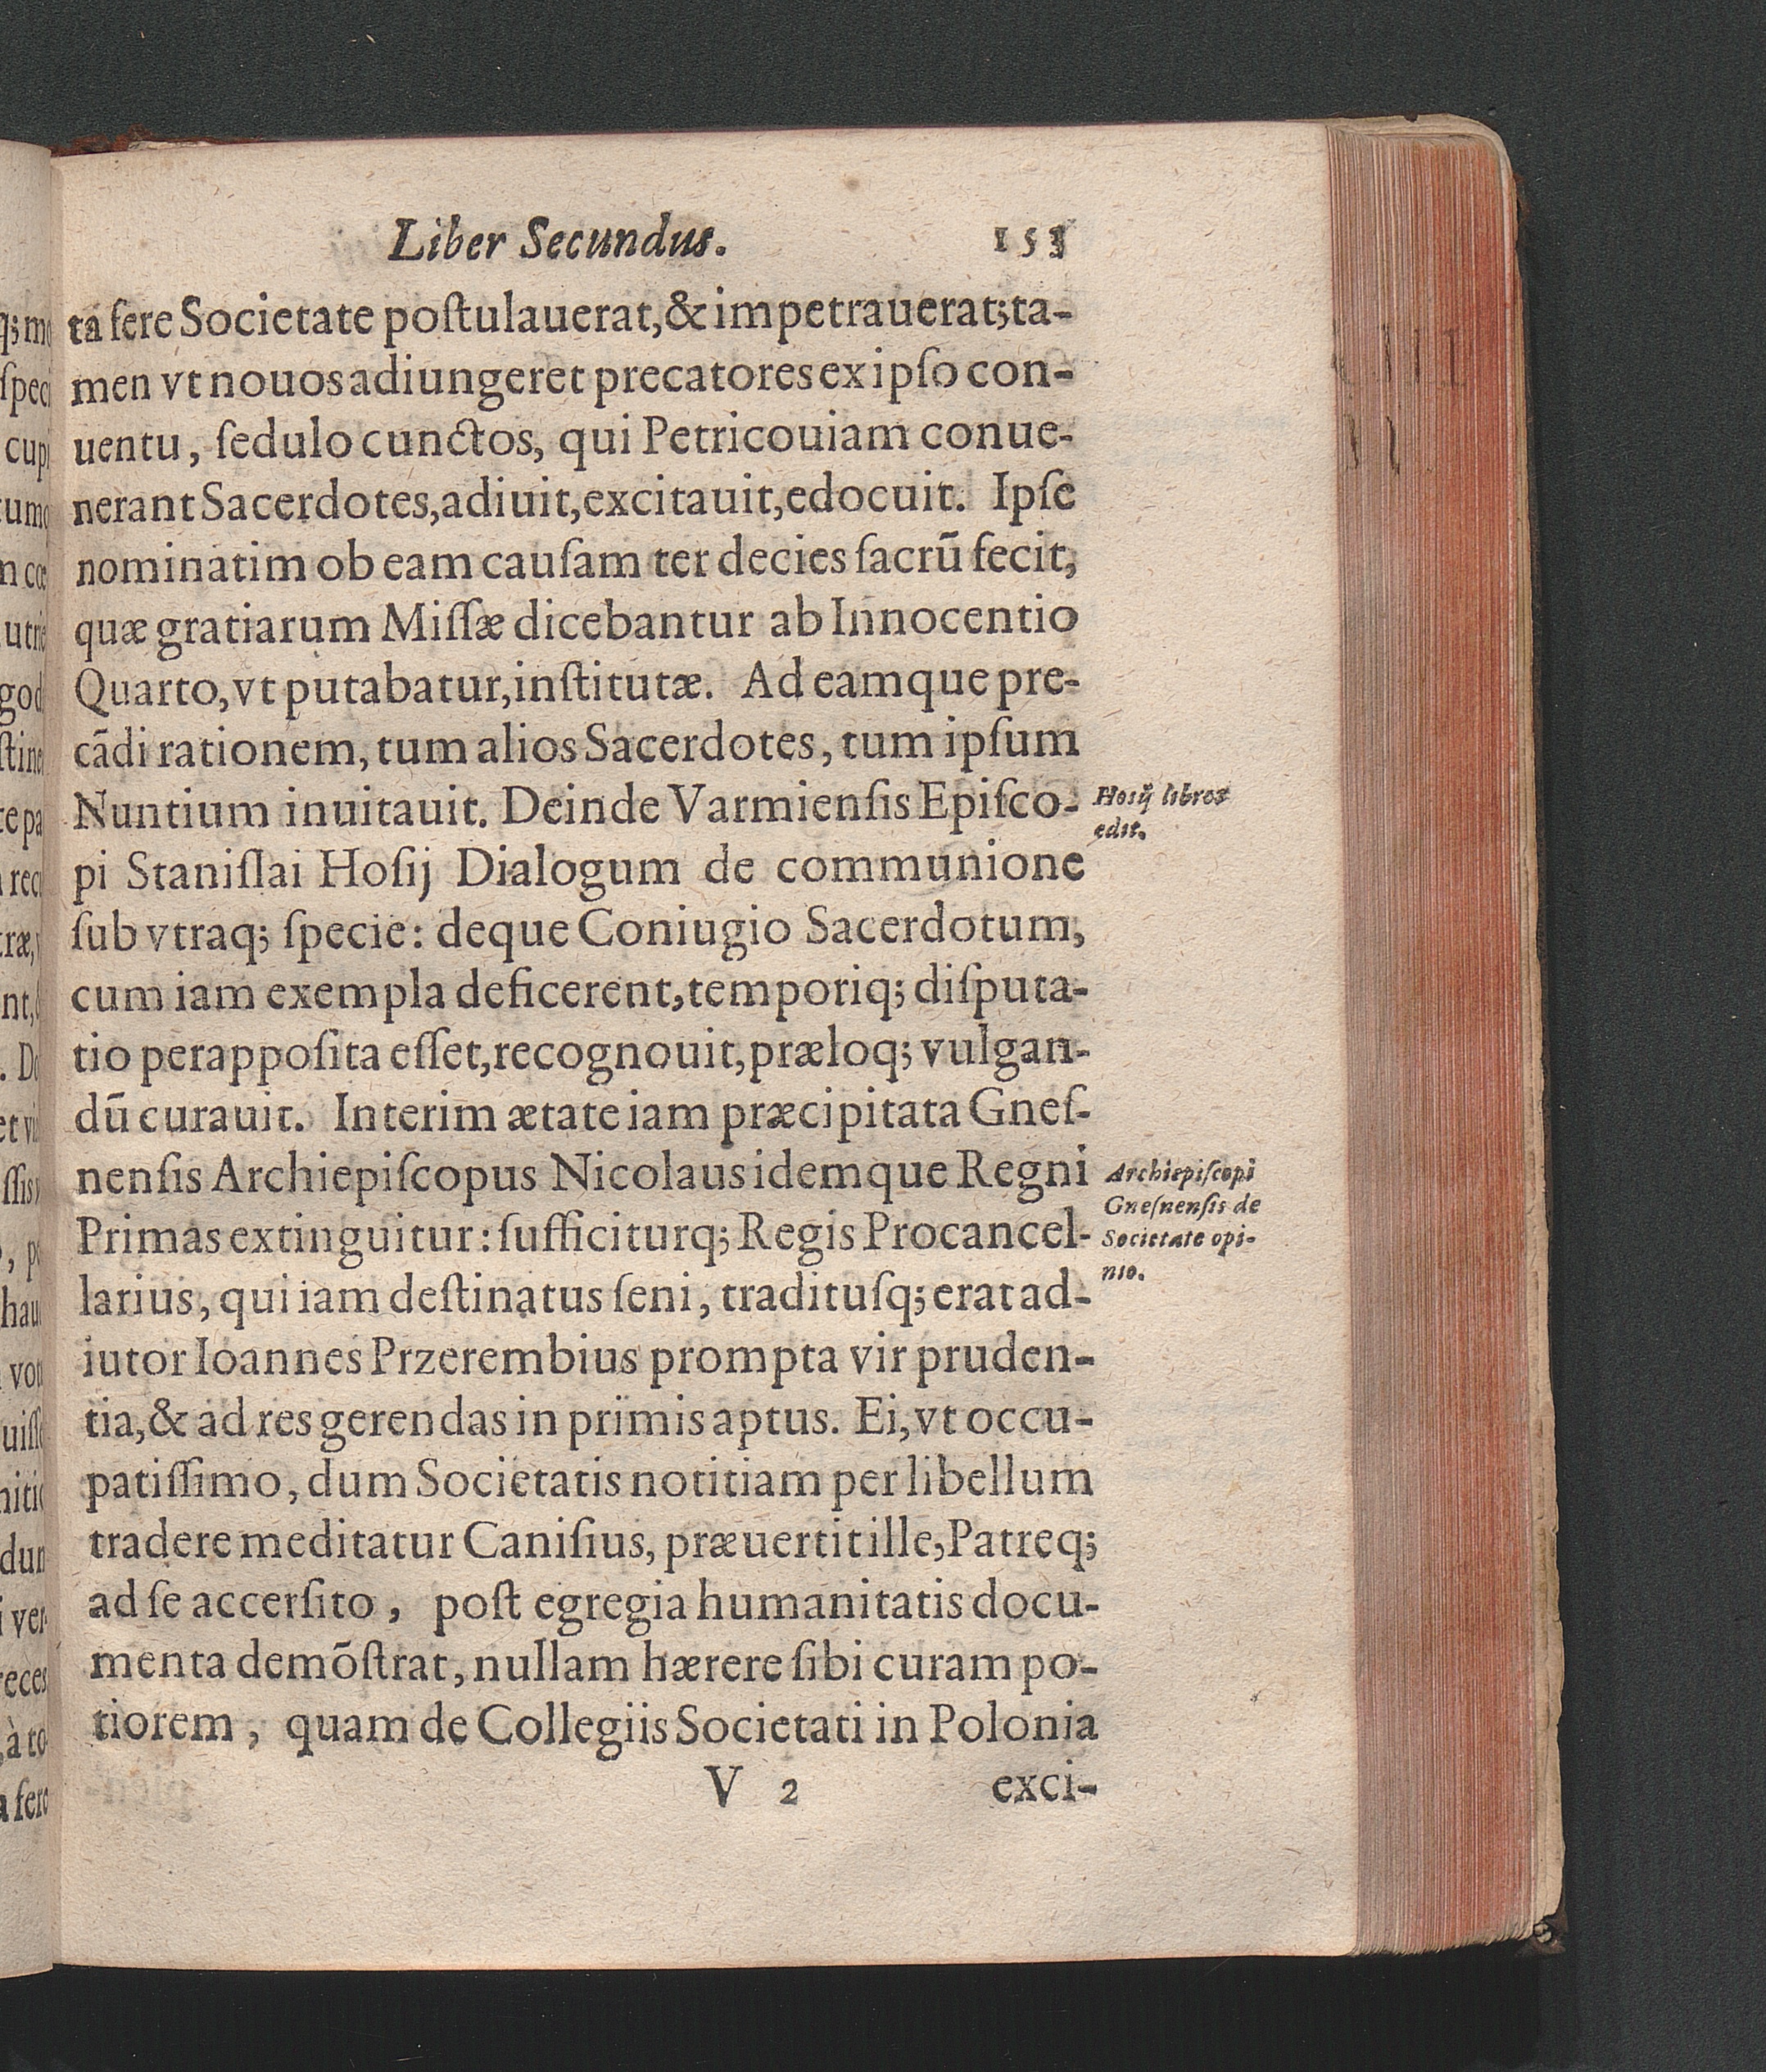 Liber Secundus. 153
ta fere Societate poſtulauerat,& impetrauerat;ta-
men vt nouos adiungeret precatores ex ipſo con-
uentu, ſedulo cunctos, qui Petricouiam conue-
nerant Sacerdotes,adiuit,excitauit,edocuit. Ipſe
nominatim ob eam cauſam ter decies ſacrū fecit,
quæ gratiarum Miſſæ dicebantur ab Innocentio
Quarto,vt putabatur,inſtitutæ. Ad eamque pre-
cādi rationem, tum alios Sacerdotes, tum ipſum
Nuntium inuitauit. Deinde Varmienſis Epiſco-
Hosij libros
edit.
pi Staniſlai Hoſij Dialogum de communione
ſub vtraq; ſpecie: deque Coniugio Sacerdotum,
cum iam exempla deficerent,temporiq; diſputa-
tio perappoſita eſſet,recognouit,præloq; vulgan-
dū curauit. Interim ætate iam præcipitata Gneſ-
nenſis Archiepiſcopus Nicolaus idemque Regni
Archiepiſcopi
Gneſnenſis de
Societate opi-
nio.
Primas extinguitur: ſufficiturq; Regis Procancel-
larius, qui iam deſtinatus ſeni, traditusſq; erat ad-
iutor Ioannes Przerembius prompta vir pruden-
tia,& ad res gerendas in primis aptus. Ei,vt occu-
patiſſimo, dum Societatis notitiam per libellum
tradere meditatur Caniſius, præuertit ille,Patreq;
ad ſe accerſito, poſt egregia humanitatis docu-
menta demōſtrat, nullam hærere ſibi curam po-
tiorem, quam de Collegiis Societati in Polonia
V 2 exci-